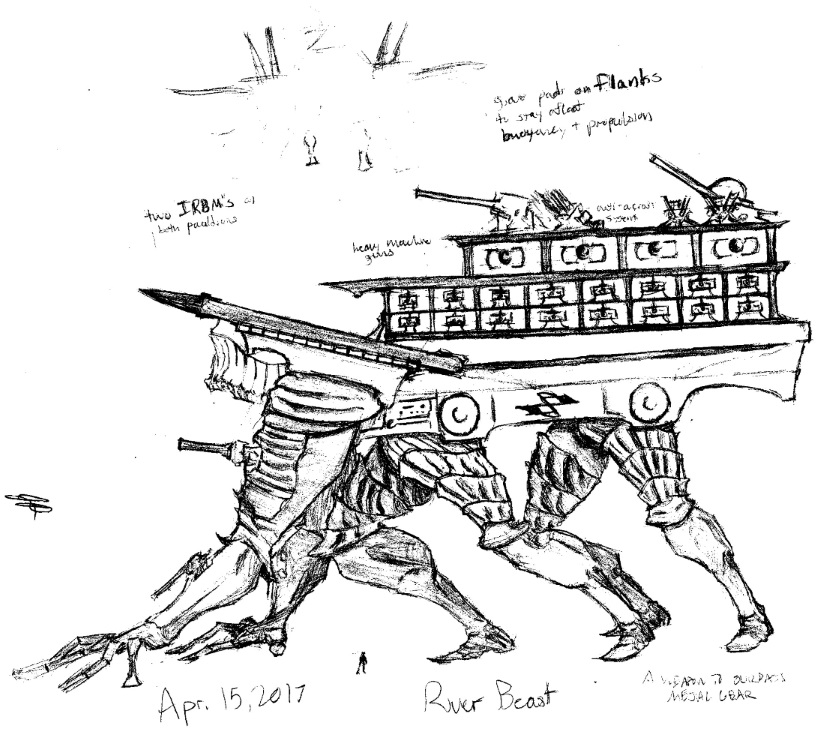 on Flanks
to stay afloat
buoyancy + propulsion
two IRBM's on
both pauldrons
anti-aircraft
heavy machine
guns
Apr. 15, 2017
River Beast
A WEAPON TO SURPASS
METAL GEAR